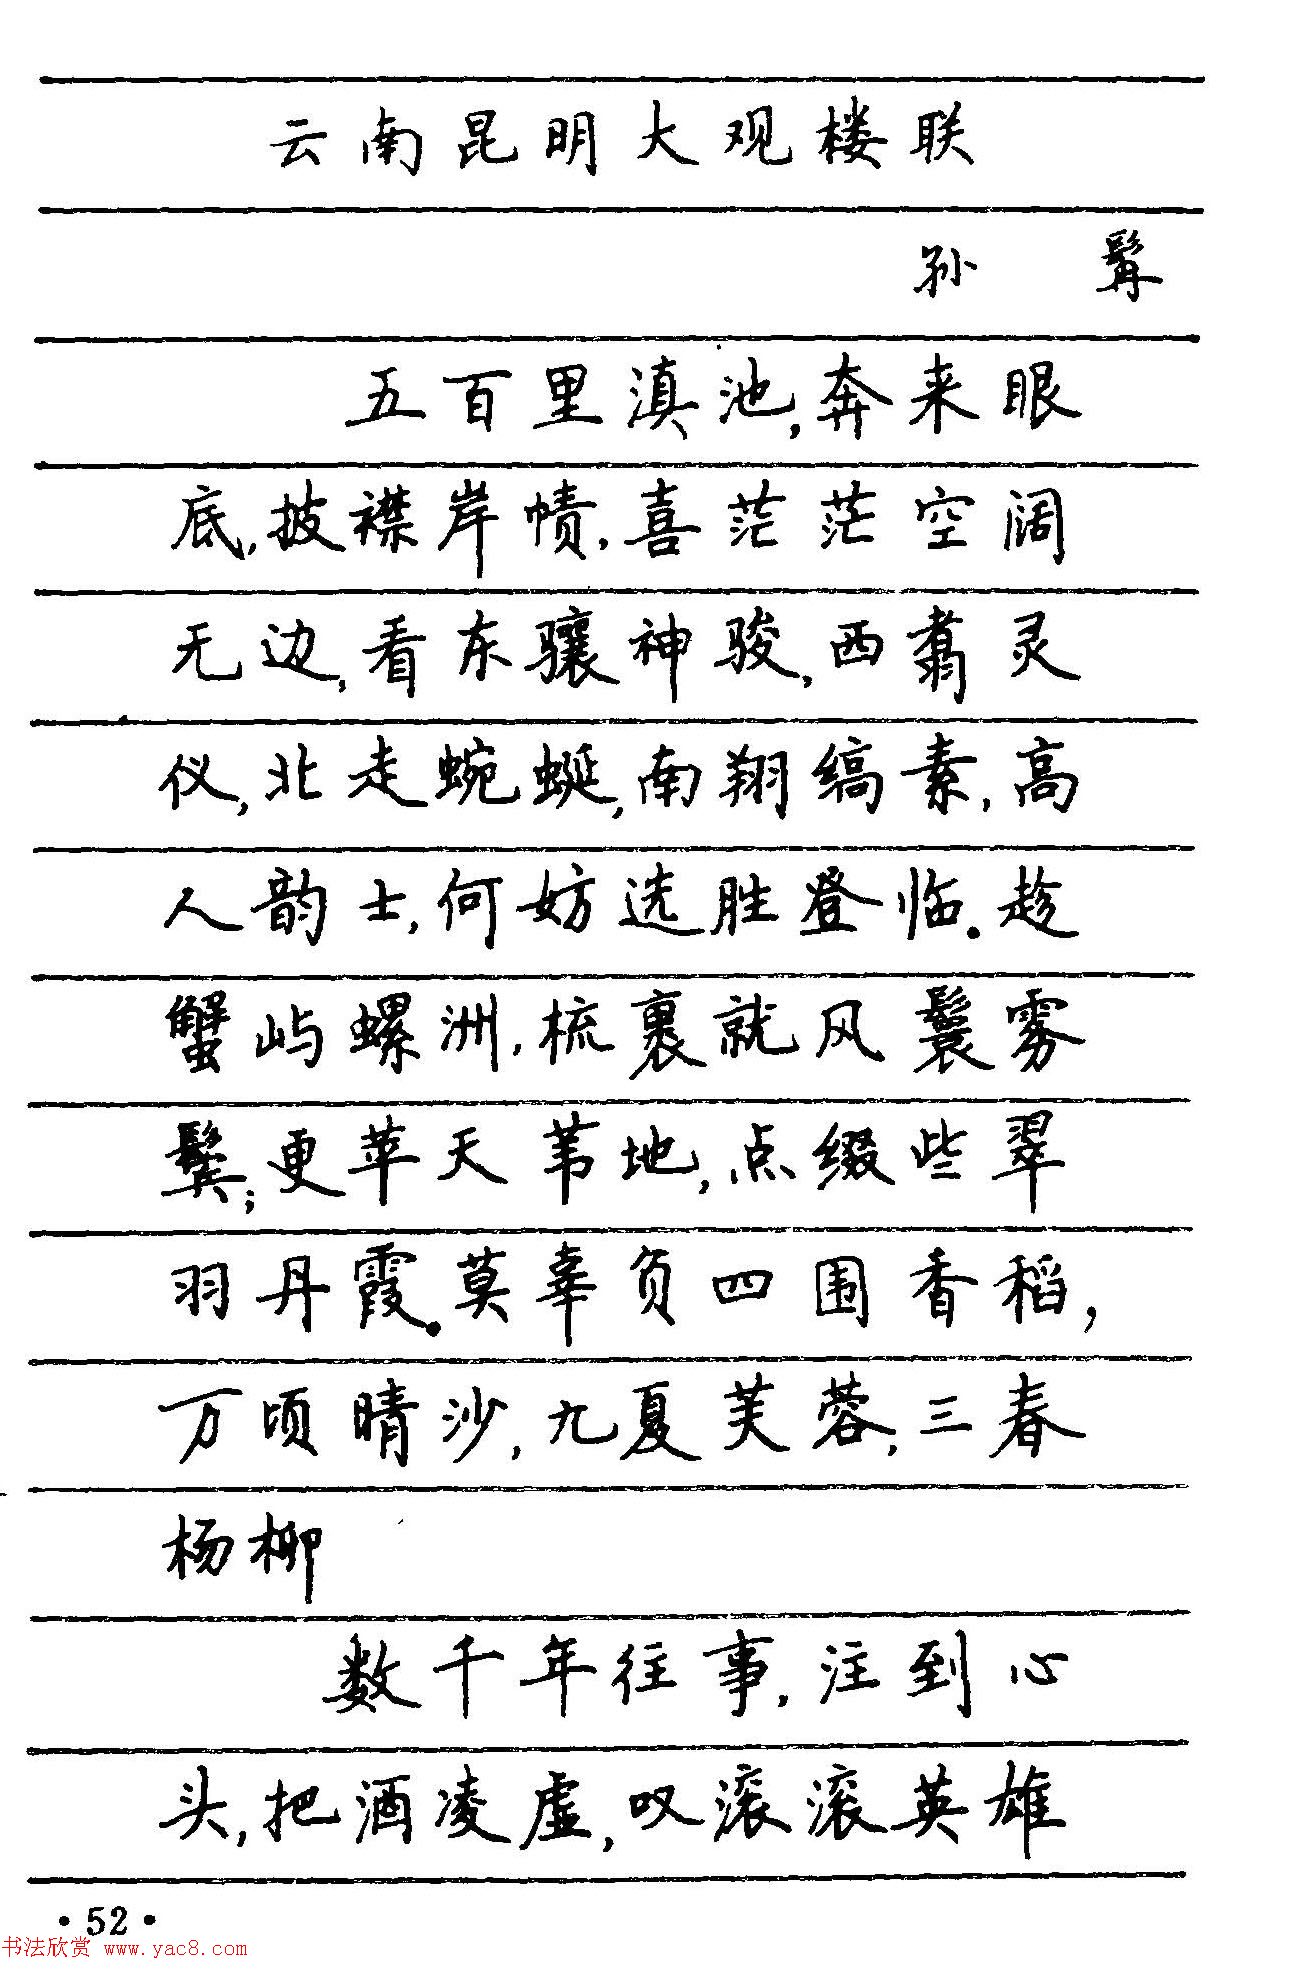 云南昆明大观楼联
孙 髯
五百里滇池,奔来眼
底,披襟岸帻,喜茫茫空阔
无边,看东骧神骏,西翥灵
仪,北走蜿蜒,南翔缟素,高
人韵士,何妨选胜登临。趁
蟹屿螺洲,梳裹就风鬟雾
鬓;更苹天苇地,点缀些翠
羽丹霞。莫辜负四围香稻,
万顷晴沙,九夏芙蓉,三春
杨柳
数千年往事,注到心
头,把酒凌虚,叹滚滚英雄
·52·
书法欣赏 www.yac8.com